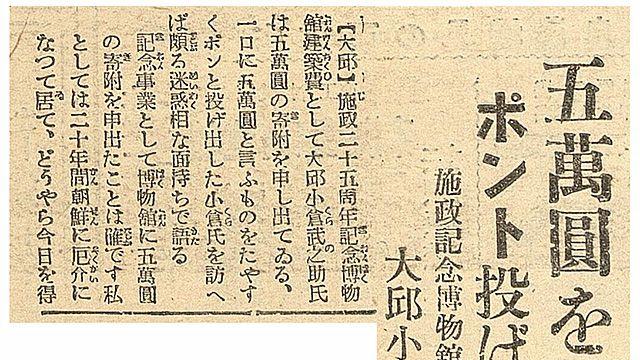 五萬圓を
ポント投げ
施政記念博物館
大邱小
【大邱】施政二十五周年記念博物
館建築費として大邱小倉武之助氏
は五萬圓の寄附を申し出てゐる、
一口に五萬圓と言ふものをたやす
くポンと投げ出した小倉氏を訪へ
ば頗る迷惑相な面持ちで語る
記念事業として博物館に五萬圓
の寄附を申出たことは確です私
としては二十年間朝鮮に厄介に
なつて居て、どうやら今日を得